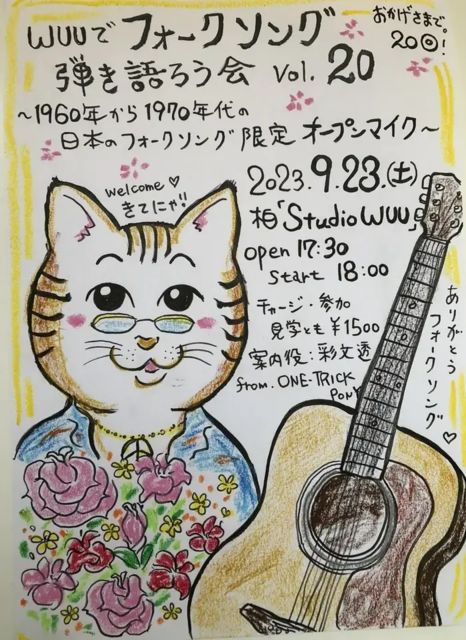 WUUで フォークソング
おかげさまで。
20◎!
弾き語ろう会 vol. 20
～1960年から1970年代の
日本のフォークソング限定 オープンマイク～
welcome♡
きてにゃ!!
2023. 9.23.(土)
柏「Studio WUU」
open 17:30
start 18:00
チャージ・参加
見学とも ¥1500
案内役：彩文透
from. ONE-TRICK
PONY
ありがとう
フォークソング♡